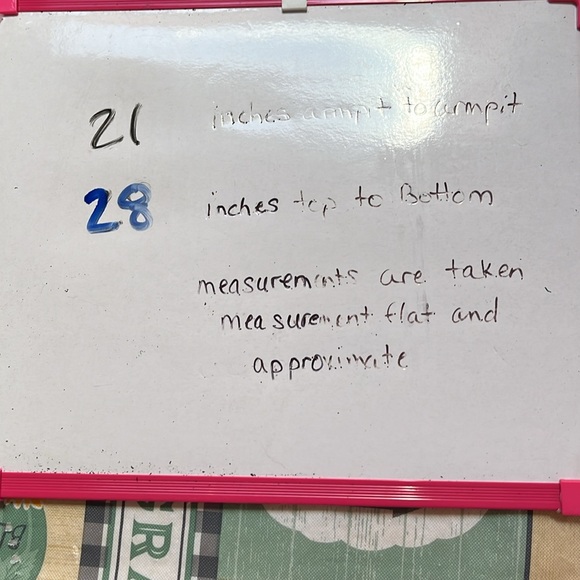 21 inches armpit to armpit
28 inches top to Bottom
measurements are taken
measurement flat and
approximate